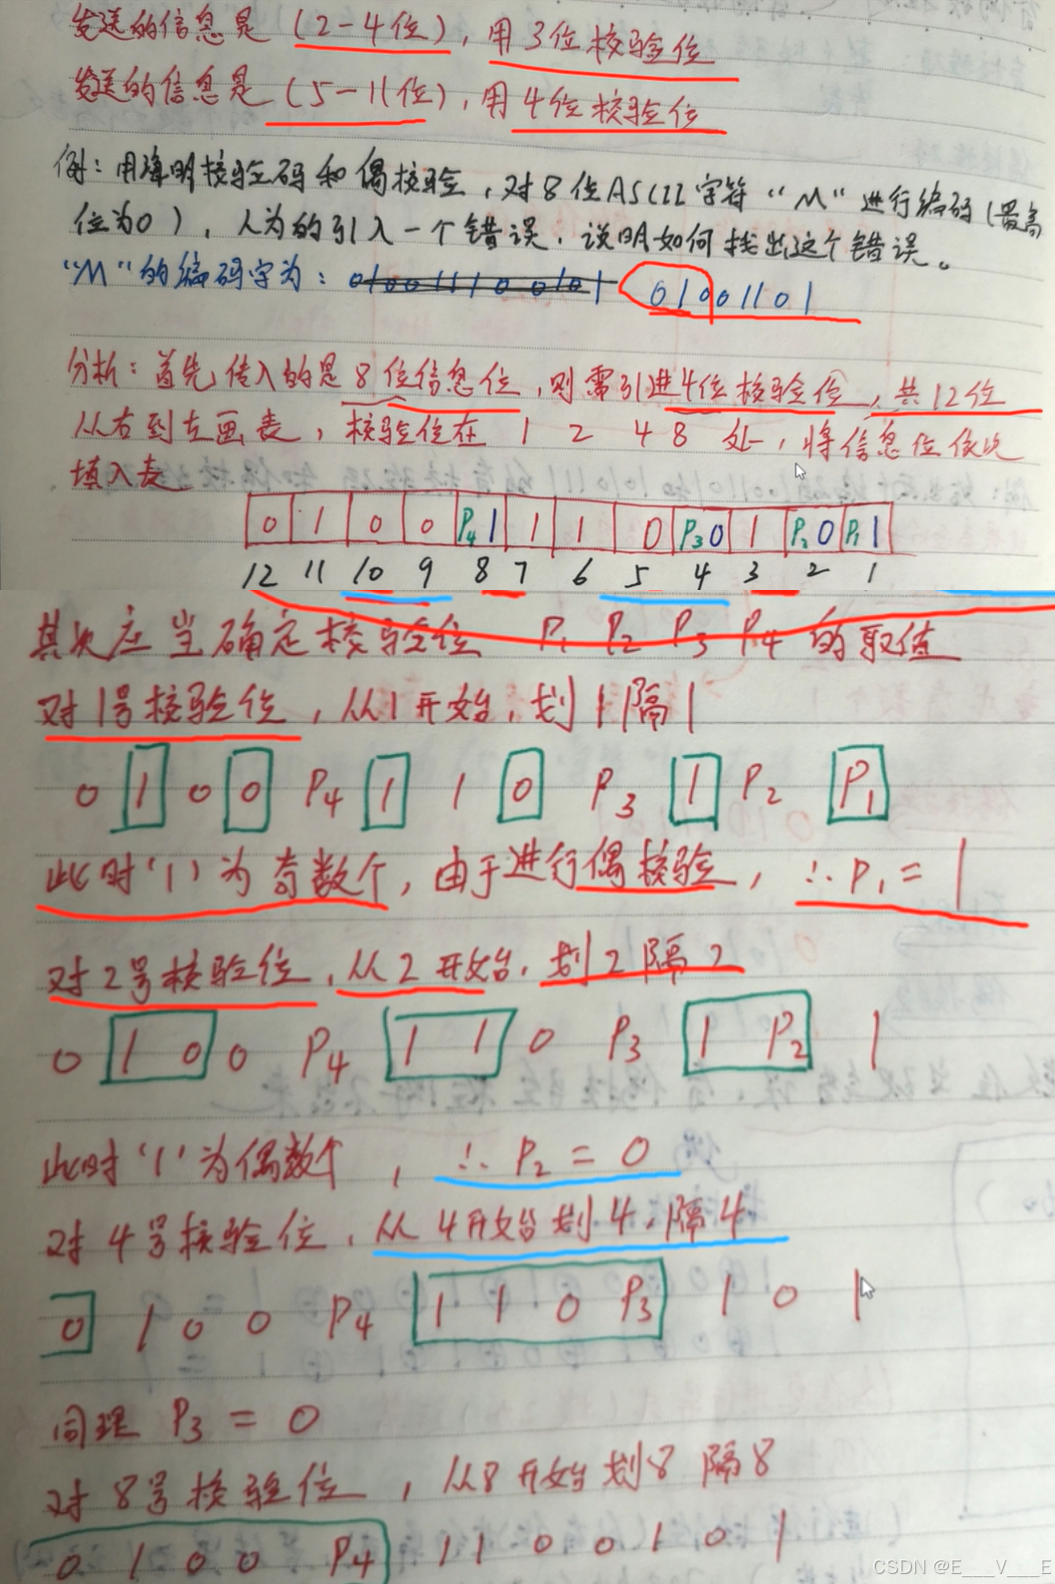 发送的信息是（2-4位），用3位校验位
发送的信息是（5-11位），用4位校验位
例：用海明校验码和偶校验，对8位ASCII字符“M”进行编码（最高
位为0），人为的引入一个错误，说明如何找出这个错误。
“M”的编码字为： 01001101
分析：首先，传入的是8位信息位，则需引进4位校验位，共12位
从右到左画表，校验位在 1 2 4 8 处，将信息位依次
填入表
0 1 0 0 P₄1 1 1 0 P₃0 1 P₂0 P₁1
12 11 10 9 8 7 6 5 4 3 2 1
其次应当确定校验位 P₁ P₂ P₃ P₄ 的取值
对1号校验位，从1开始，划1隔1
0 1 0 0 P₄ 1 1 0 P₃ 1 P₂ P₁
此时‘1’为奇数个，由于进行偶校验，∴P₁=1
对2号校验位，从2开始，划2隔2
0 1 0 0 P₄ 1 1 0 P₃ 1 P₂ 1
此时‘1’为偶数个，∴P₂=0
对4号校验位，从4开始划4，隔4
0 1 0 0 P₄ 1 1 0 P₃ 1 0 1
同理 P₃=0
对8号校验位，从8开始划8隔8
0 1 0 0 P₄ 1 1 0 0 1 0 1
CSDN @E___V___E